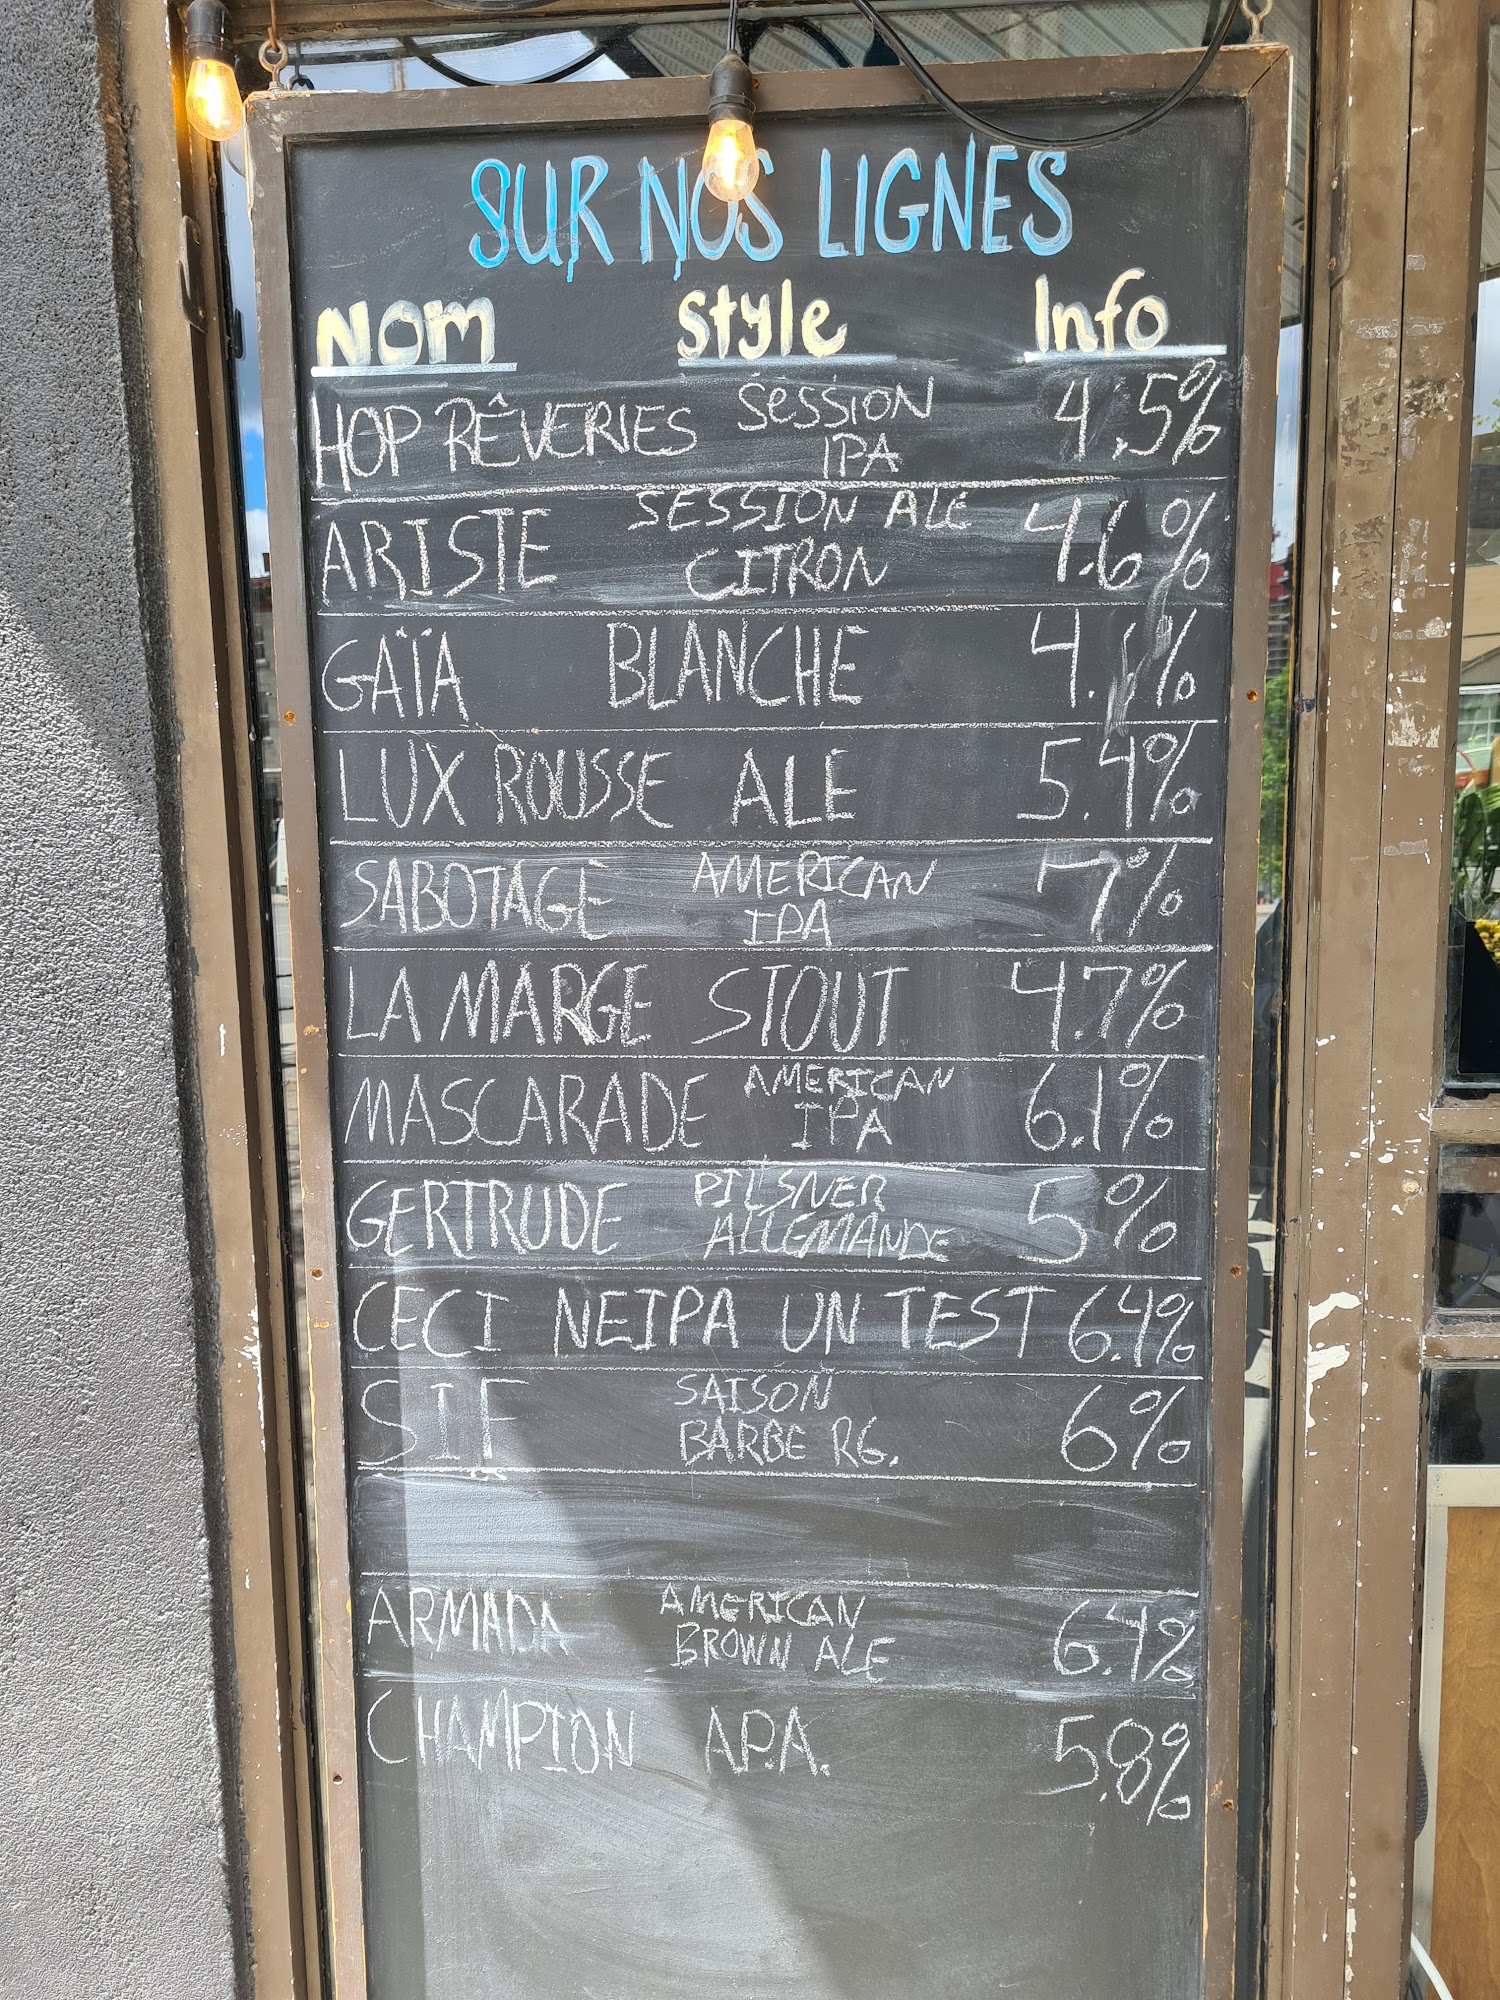 SUR NOS LIGNES
Nom Style Info
HOP RÊVERIES SESSION IPA 4.5%
ARISTE SESSION ALE CITRON 4.6%
GAÏA BLANCHE
LUX ROUSSE ALE 5.4%
SABOTAGE AMERICAN IPA 7%
LA MARGE STOUT 4.7%
MASCARADE AMERICAN IPA 6.1%
GERTRUDE PILSNER ALLEMANDE 5%
CECI NEIPA UN TEST 6.4%
SIF SAISON BARBE RG. 6%
ARMADA AMERICAN BROWN ALE 6.4%
CHAMPION A.P.A. 5.8%